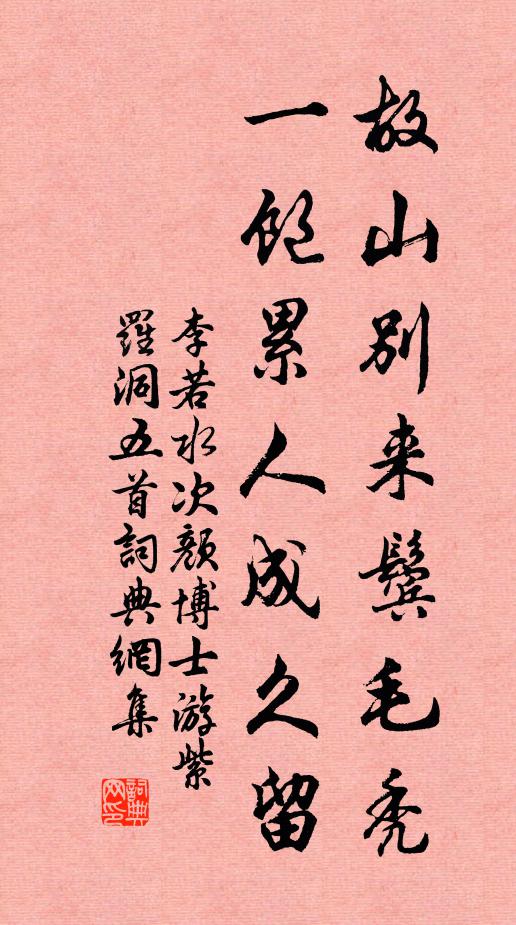 故山别来鬓毛秃
一饱累人成久留
李若水次颜博士游紫
羅洞五首詞典網集
詞典
网印